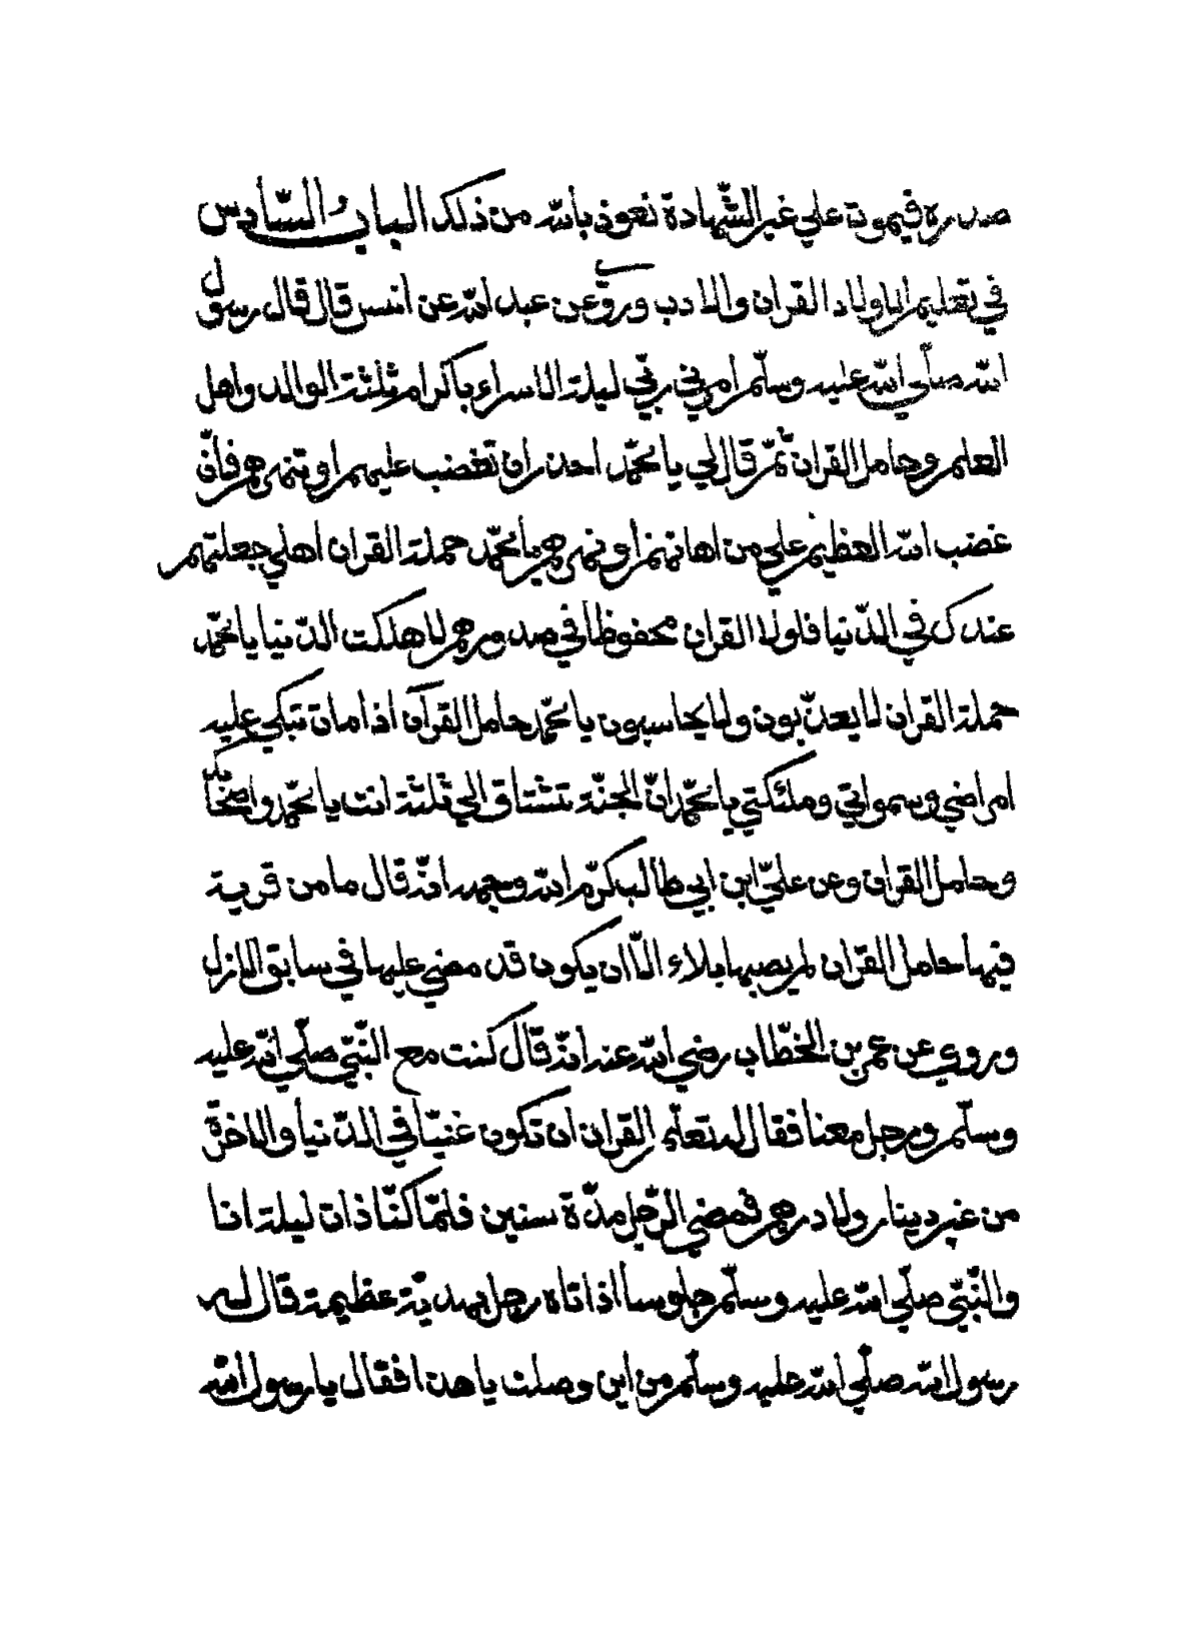 صدره فيموت علي غير الشّهادة نعوذ بالله من ذلك الباب السّادس
في تعليم الاولاد القران والادب وروي عن عبد الله عن انس قال قال رسول
الله صلّي الله عليه وسلّم امرني ربّي ليلة الاسراء باكرام ثلثة الوالد واهل
العلم وحامل القران ثمّ قال لي يا محمّد احذر ان تغضب عليهم او تنهرهم فانّ
غضب الله العظيم علي من اهانهم او نهرهم يا محمّد حملة القران اهلي جعلتهم
عندك في الدّنيا فلولا القران محفوظا في صدورهم لاهلكت الدّنيا يا محمّد
حملة القران لا يعذّبون ولا يحاسبون يا محمّد حامل القرآن اذا مات تبكي عليه
ارضي وسمواتي وملئكتي يا محمّد انّ الجنّة تشتاق الي ثلثة انت يا محمّد واصحابك
وحامل القران وعن عليّ ابن ابي طالب كرّم الله وجهه انّه قال ما من قرية
فيها حامل القران لم يصبها بلاء الّا ان يكون قد مضي عليها في سابق الازل
وروي عن عمر بن الخطّاب رضي الله عنه انّه قال كنت مع النّبيّ صلّي الله عليه
وسلّم ورجل معنا فقال له تعلّم القران ان تكون غنيّا في الدّنيا والاخرة
من غير دينار ولا درهم فمضي الرّجل مدّة سنين فلمّا كنّا ذات ليلة انا
والنّبيّ صلّي الله عليه وسلّم جلوسا اذ اتاه رجل بهديّة عظيمة قال له
رسول الله صلّي الله عليه وسلّم من اين وصلت يا هذا فقال يا رسول الله